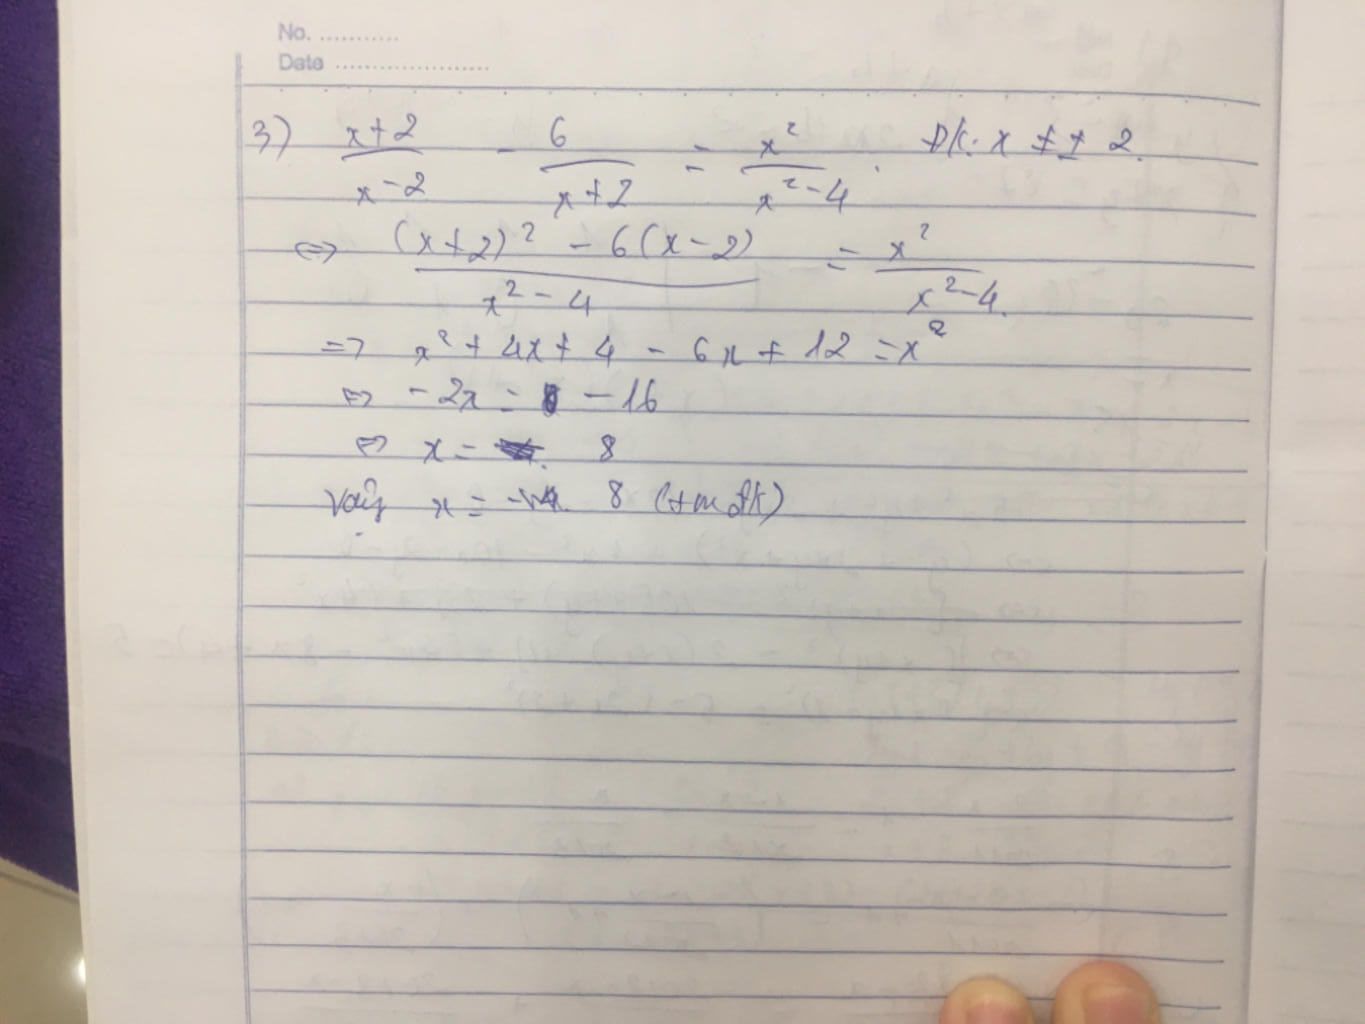 No. ...........
Date ......................
3) \frac{x+2}{x-2} - \frac{6}{x+2} = \frac{x^2}{x^2-4}. ĐK: x ≠ ± 2.
<=> \frac{(x+2)^2 - 6(x-2)}{x^2-4} = \frac{x^2}{x^2-4}.
=> x^2 + 4x + 4 - 6x + 12 = x^2
<=> -2x = -16
<=> x = 8
Vậy x = 8 (tm đk)